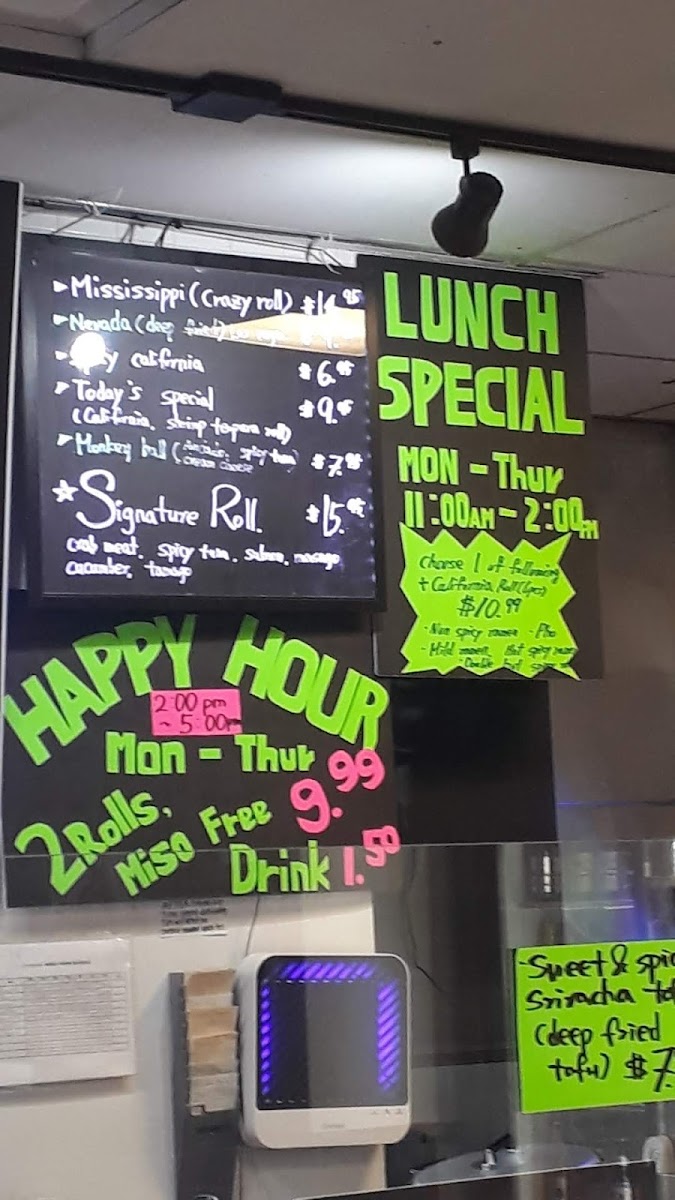 ▻Mississippi (Crazy roll) $14.95
▻Nevada (deep fried)
california $6.95
▻Today's special $9.95
(California, shrimp tempura roll)
▻Monkey ball (avocado, spicy tuna
cream cheese $7.95
☆Signature Roll. $15.95
crab meat, spicy tuna, salmon, masago
cucumber, tamago
LUNCH
SPECIAL
MON - Thur
11:00AM - 2:00PM
Choose 1 of following
+ California Roll
$10.99
• Non spicy ramen • Pho
• Mild ramen Hot spicy
HAPPY HOUR
2:00 pm
~ 5:00pm
Mon - Thur
2 Rolls, 9.99
Miso Free
Drink 1.50
-Sweet & spic
Sriracha
(deep fried
tofu) $7.